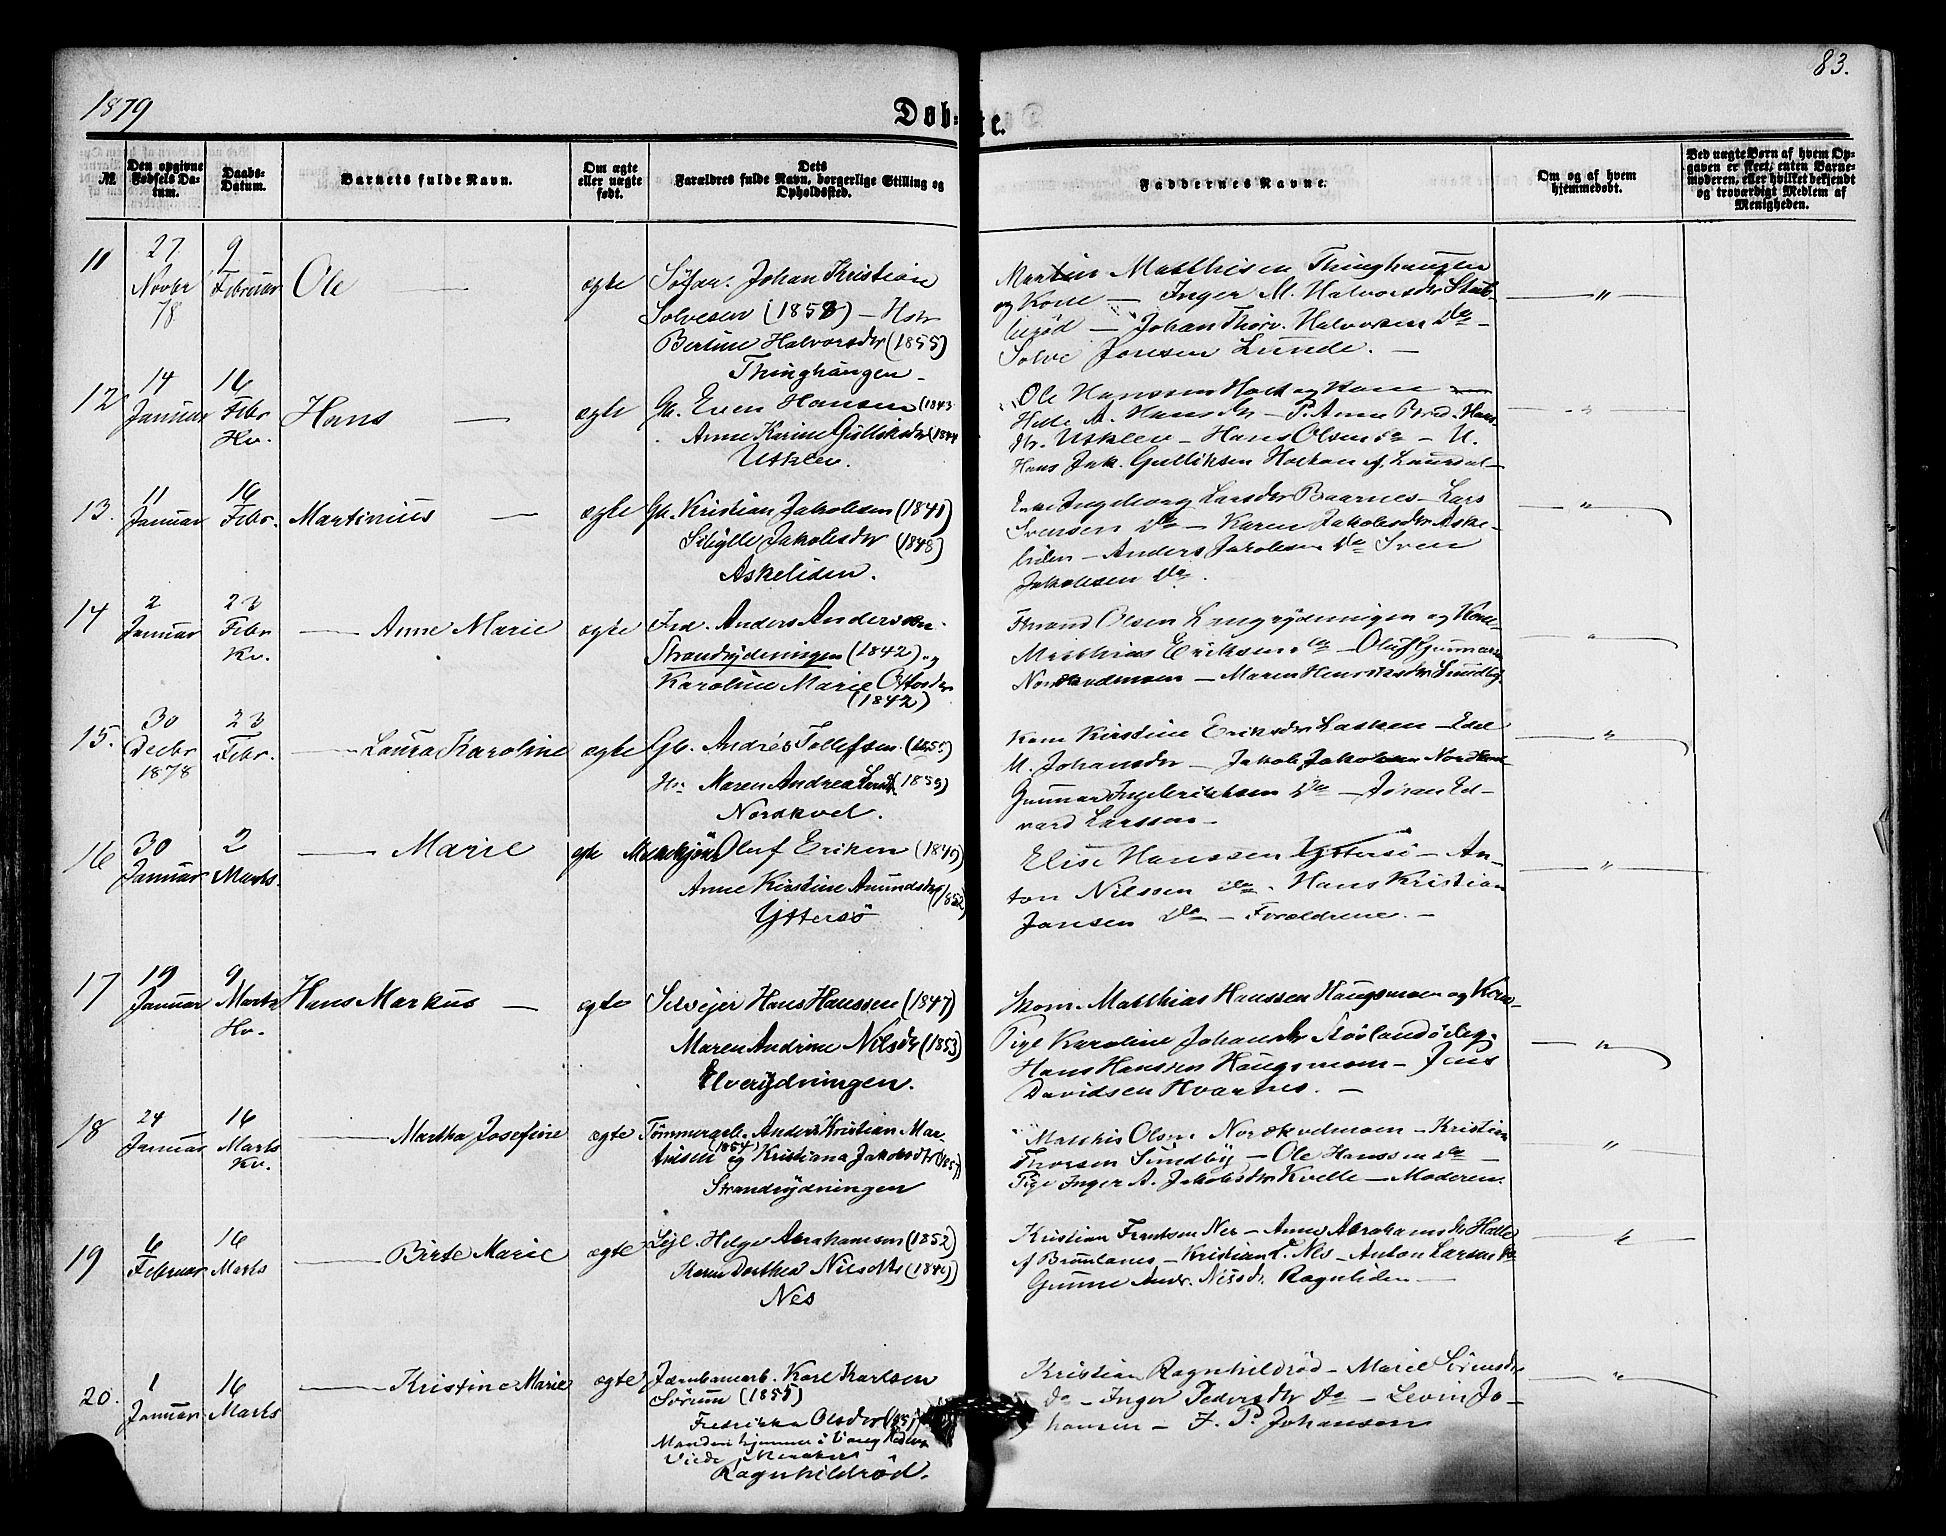 1879
Døb-te.
83.
№
Den opgivne Fødsels Datum.
Daabs-Datum.
Barnets fulde Navn.
Om ægte eller uægte født.
Dets Forældres fulde Navn, borgerlige Stilling og Opholdssted.
Faddernes Navne.
Om og af hvem hjemmedøbt.
Ved uægte Børn af hvem Opgaven er skeet; enten Barnemoderen, eller hvilket bekjendt og troværdigt Medlem af Menigheden.
11
27 Novbr 78
9 Februar
Ole —
ægte
Johan Kristian
Solvesen
Bertine Halvorsdr (1855)
Thinghaugen
Martin Matthisen Thinghaugen
og Kone — Inger M. Halvorsdr
Johan Thorv. Halvorsen Do —
Solve Jonsen Lunde. —
"
12
14 Januar
16 Febr Hv.
Hans —
ægte
Gb. Even Hansen (1843
Anne Karine Gulliksdr (1844
Utklev.
Ole Hansen Holt og Kone
Helle A. Hansdr — P. Anne
Utklev — Hans Olsen Do — U.
Hans Jak. Gulliksen Holtan af Laurdal —
"
13.
11 Januar
16 Febr.
Martinius —
ægte
Gb. Kristian Jakobsen (1841)
Sibylle Jakobsdr (1848)
Askeliden.
Enke Ingeborg Larsdr Baarnes — Lars
Svensen Do — Karen Jakobsdr Aske-
liden — Anders Jakobsen Do Sven
Jakobsen Do.
"
14
2 Januar
23 Febr Kv.
— Anne Marie
ægte
Ind. Anders Anderssen
Strandrydningen (1842) og
Karoline Marie Ottosdr
(1842)
Olsen Langrydningen og Kone
Matthias Eriksen Do — Oluf Gunnars
Nordkvelmoen — Maren Henriksdr
"
15.
30 Decbr 1878
23 Febr.
— Laura Karoline
ægte
Gb. Andrés Tollefsen
Hu Maren Andrea (1859)
Nordkvel.
Kone Kirstine Eriksdr — Edel
M. Johansdr — Jakob Jakobsen
Gunnar Ingebriktsen Do — Johan Ed-
vard Larssen —
"
16
30 Januar
2 Marts.
— Marie
ægte
Oluf Eriksen
Anne Kirstine Amundsdr (1852)
Yttersö
Elise Hanssen Yttersö — An-
ton Nilssen Do. Hans Kristian
Jansen Do — Forældrene. —
"
17
19 Januar
9 Marts Hv.
Hans Markus —
ægte
Selvejer Hans Hanssen (1847)
Maren Andrine Nilsdr (1853)
Elverydningen.
Skom. Matthias Hanssen Haugsmoen og Kone
Pige Karoline Johansdr
Hans Hanssen Haugsmoen — Jens
Davidsen Hvarnes. —
"
18
24 Januar
16 Marts Kv.
— Martha Josefine
ægte
Tömmerarb. Anders Kristian Mar-
tinsen (1854) og Kristiana Jakobsdr
Strandrydningen
Matthis Olsen Nordkvelmoen — Kristian
Thorsen Sundby — Ole Hanssen Do —
Pige Inger A. Jakobsdr Kvelle — Moderen.
"
19
6 Februar
16 Marts
— Birte Marie
ægte
Lejl. Helge Abrahamsen (1852)
Maren Dorthea Nilsdtr
Nes
Kristian Frantsen Nes — Anne Abrahamsdr Halle
af Brunlanes — Kristian L. Nes — Anton Larsen Do
Gunne Andr. Nilsdr. Ragnliden —
"
20.
1 Januar
16 Marts
— Kristine Marie
ægte
Jærnbanearb. Karl Karlsen
Sörum (1855)
Fredrikka Olsdr
Manden hjemme i
Ragnhildröd.
Kristian Ragnhildröd — Marie
Do — Inger Pedersdtr Do — Levin Jo-
hansen — J. P. Johansen
"